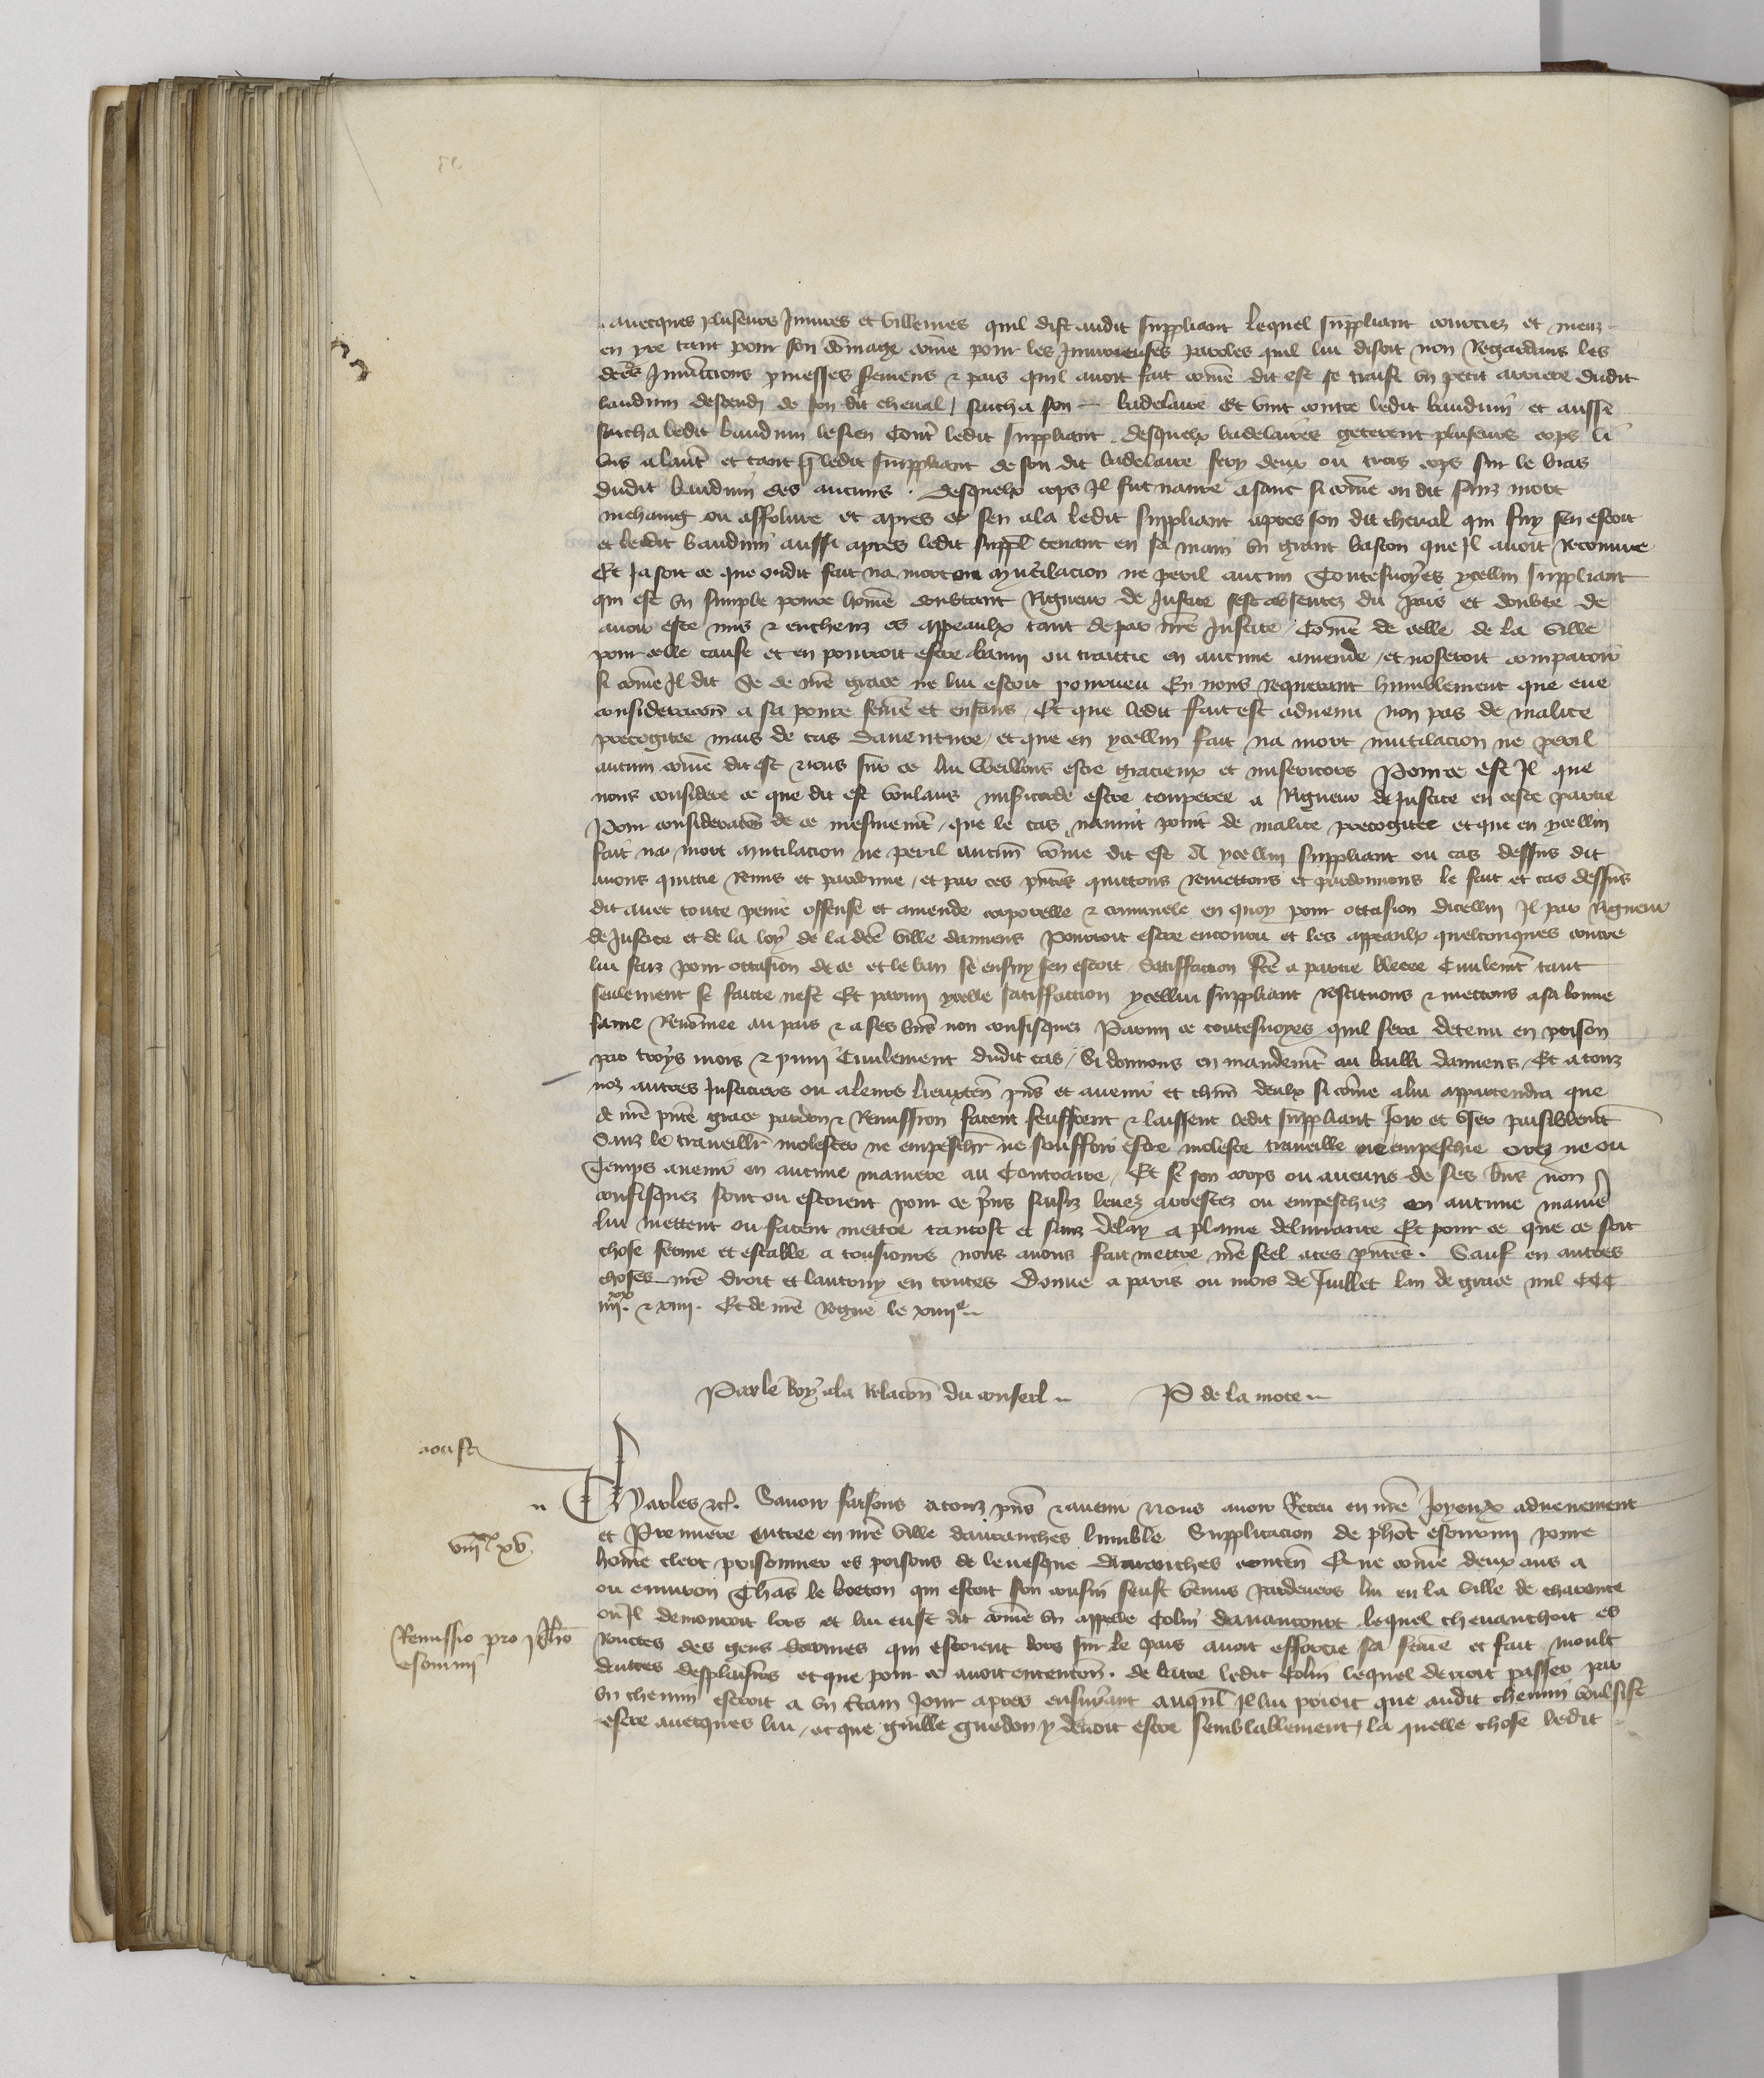 avecques pluseurs Iniures et villenies quil dist audit suppliant lequel suppliant courciez et meuz
en yre tant pour son dommage cōme pour les Iniurieuses paroles quil lui disoit non Regardans les
dcēs Inuacions pmesses semens & pais quil auoit fait cōme dit est se traist vn petit arriere dudit
baudum descendj de son dit cheual / sacha son badelaire Et vint contre ledit baudum et aussi
sacha ledit baudum le sien Contr̄ ledit suppliant . desquelx badelaires geterent pluseurs cops li
vns a lautr̄ et tant q̄ ledit suppliant de son dit badelaire fery deux ou trois cops sur le bras
dudit baudum des aucuns . desquelx cops Il fut naure a sanc si cōme on dit sanz mort
mehaing ou affolure et apres ce sen ala ledit suppliant apres son dit cheual qui fuy sen estoit
et ledit baudum aussi apres ledit suppl̄ tenant en sa main vn grant baston que Il auoit recouure
Et Ja soit ce que oudit fait na mort ou mutilacion ne peril aucun Toutesuoyes ycellui suppliant
qui est vn simple poure homē doubtant Rigueur de Justice sest absentez du pais et doubte de
auoir este mis & encheuz es appeaulx tant de par nr̄e Justice / Cōme de celle de la ville
pour celle cause et en pourroit estre banny ou traittie en aucune amende / et noseroit comparoir
si cōme Il dit Se de nr̄e grace ne lui estoit pourueu En nous requerant humblement que eue
consideracōn a sa poure femē et enfans / Et que ledit fait est aduenu non pas de malice
precogitee mais de cas dauenture / et que en ycellui fait na mort mutilacion ne peril
aucun cōme dit est nous sur ce lui Weillons estre gracieux et misericors Pour ce est Il que
nous considere ce que dit est voulans mis̄icorde estre temperee a Rigueur de Justice en ceste partie
Pour consideracōn de ce mesmemt̄ / que le cas nauint point de malice precogitee et que en ycellui
fait na mort mutilacion ne peril aucun cōme dit est A ycellui suppliant ou cas dessus dit
auons quittie Remis et pardonne / et par ces pn̄tes quittons remettons et pardonnons le fait et cas dessus
dit auec toute peine offense et amende corporelle & criminele en quoy pour occasion dicellui Il par Rigueur
de Justice et de la loy de la dcē ville damiens Pourroit estre encouru et les appeaulx quelconques contre
lui faiz pour occasion de ce et le ban se ensuy sen estoit / Satisfaction fcē a partie blecee Ciuilemt̄ tant
seulement se faicte nest Et parmi ycelle satisffaction ycellui suppliant restituons & mettons a sa bonne
fame Renōmee au pais & a ses biēs non confisquez Parmi ce toutesuoyes quil sera detenu en prison
par troys mois & puni Ciuilement dudit cas / Si donnons en mandemt̄ au bailli damiens / Et a touz
noz autres Justiciers ou a leurs lieuxten̄ pn̄s et auenir et chūn deulx si cōme a lui appartendra que
de nr̄e pn̄te grace pardon & Remission facent seuffrent & laissent ledit suppliant Joir et vser paisiblemt̄
Sanz le traueillr̄ molester ne empeschr̄ ne souffrir estre moleste traueille ne empeschie ores ne ou
Temps auenir en aucune maniere au Contraire / Et se son corps ou aucuns de ses biēs non
confisquez sont ou estoient pour ce pris saisiz leuez arrestez ou empeschiez en aucune maniē
lui mettent ou facent mettre tantost et sanz delay a plaine deliurance Et pour ce que ce soit
chose ferme et estable a tousiours nous auons fait mettre nr̄e seel a ces pn̄tes . Sauf en autres
choses nr̄e droit et lautruy en toutes Donne a paris ou mois de Juillet lan de grace mil CCC
iiij.xx & xiiij. Et de nr̄e regne le xiiije
Par le Roy a la relacōn du conseil P de la mote
aoust
Charles &c̄. Sauoir faisons a touz pn̄s & auenir nous auoir Receu en nr̄e Joyeux aduenement
et Premiere entree en nr̄e ville dauranches lumble Supplicacion de ph̄ot esourmy poure
viijxx xv.
homē clerc prisonnier es prisons de leuesque dauranches conten̄ Que cōme deux ans a
ou enuiron Thās le breton qui estoit son cousin feust venus pardeuers lui en la ville de charance
ou Il demouroit lors et lui eust dit cōme vn appelle Colin dauancourt lequel cheuauchoit es
Remissio pro ph̄o
esourmi
Routtes des gens darmes qui estoient lors sur le pais auoit efforcie sa femē et fait moult
dautres desplaisirs et que pour ce auoit entencōn . de batre ledit Colin lequel deuoit passer par
vn chemin estroit a vn cētain Jour apres ensuiuant auql̄ Il lui prioit que audit chemin voulsist
estre auecques lui / et que guille guedon y deuoit estre semblablement / la quelle chose ledit